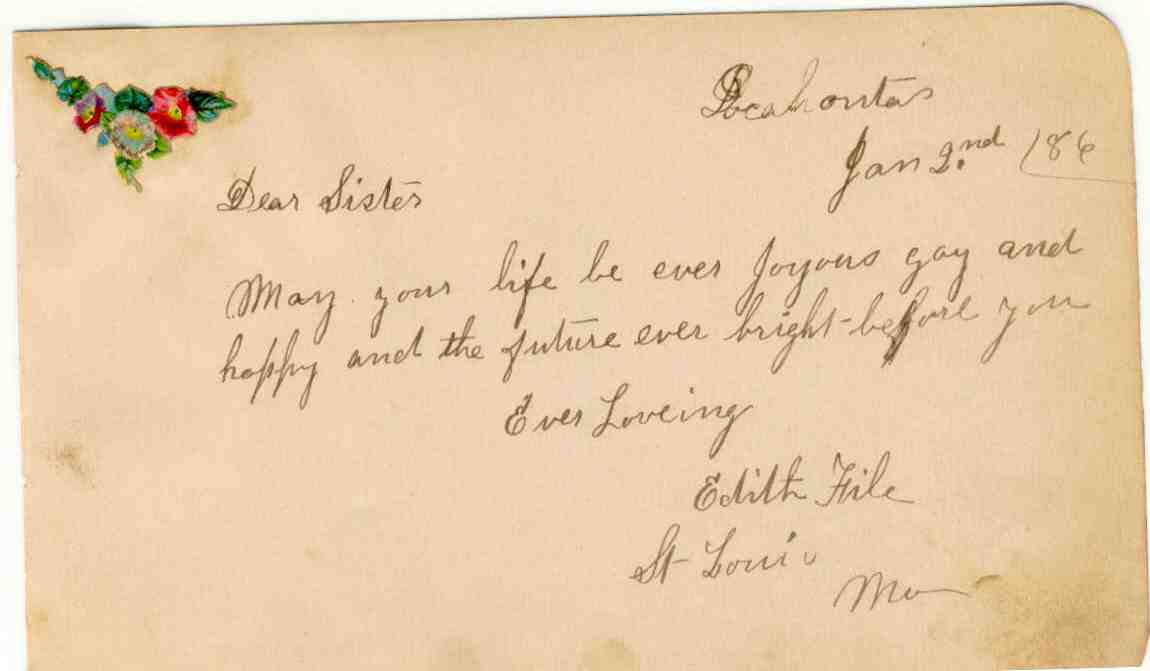 Pocahontas
Jan 2.nd 186
Dear Sister
May your life be ever Joyous gay and
happy and the future ever bright-before you
Ever Loveing
Edith File
St Louis
Mo